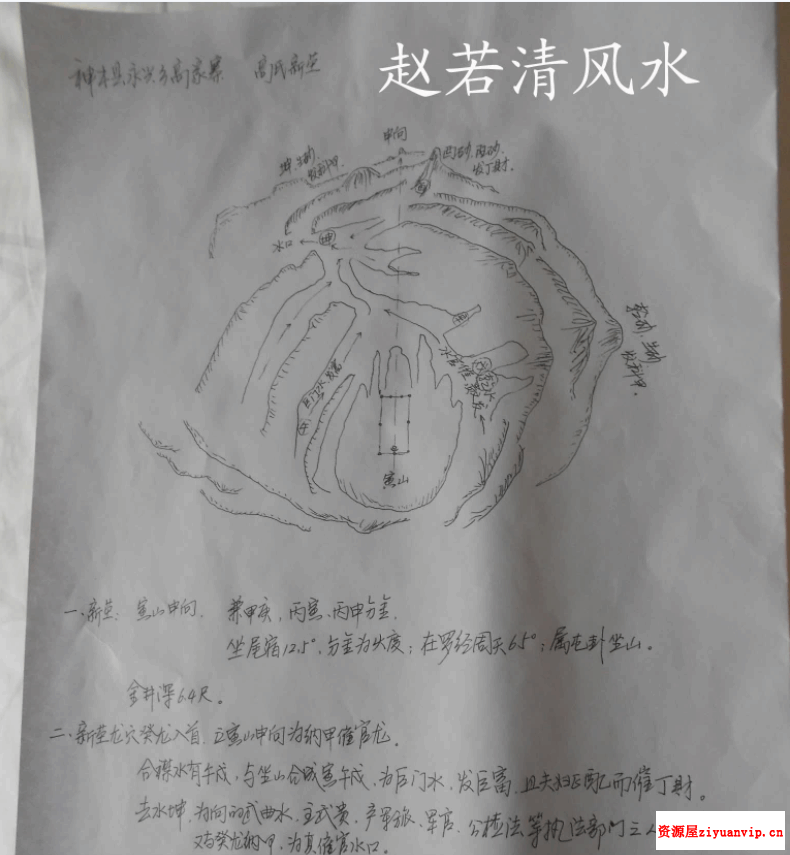 神木县永兴乡高家寨 高氏新茔
赵若清风水
申向
坤
水口
坤
巨门水发富
午
寅山
一、新茔: 寅山申向. 兼甲庚, 丙寅、丙申分金.
坐尾宿12.5°, 分金为火度; 在罗经周天65°; 属屯卦坐山。
金井深6.4尺。
二、新茔龙穴癸龙入首. 立寅山申向为纳甲催官龙。
合禄水有午戌, 与坐山合成寅午戌, 为巨门水, 发巨富, 且夫妇正配而催丁财。
去水坤, 为向的武曲水, 主武贵, 产军旅、军官、公检法等执法部门之人
又与癸龙纳甲, 为真催官水口。
资源屋ziyuanvip.cn